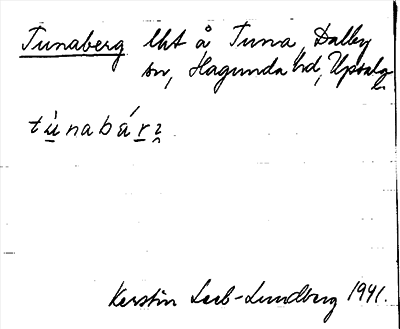 Tunaberg lht å Tuna, Dalby
sn, Hagunda hd, Upsala
l.
tù̲nabár̲
Kerstin Leeb-Lundberg 1941.